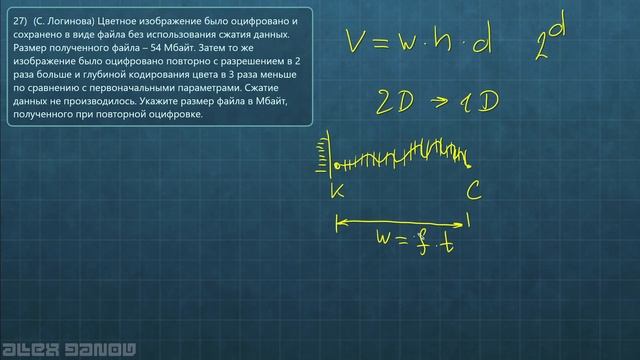 27) (С. Логинова) Цветное изображение было оцифровано и
сохранено в виде файла без использования сжатия данных.
Размер полученного файла – 54 Мбайт. Затем то же
изображение было оцифровано повторно с разрешением в 2
раза больше и глубиной кодирования цвета в 3 раза меньше
по сравнению с первоначальными параметрами. Сжатие
данных не производилось. Укажите размер файла в Мбайт,
полученного при повторной оцифровке.
V = w · h · d 2^d
2D → 1D
K C
w = f · t
ALEX DANOV